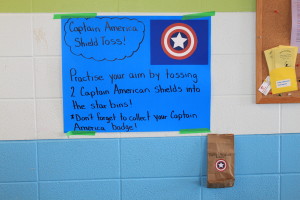 Captain America
Shield Toss!
Practise your aim by tossing
2 Captain American shields into
the star bins!
*Don't forget to collect your Captain
America badge!